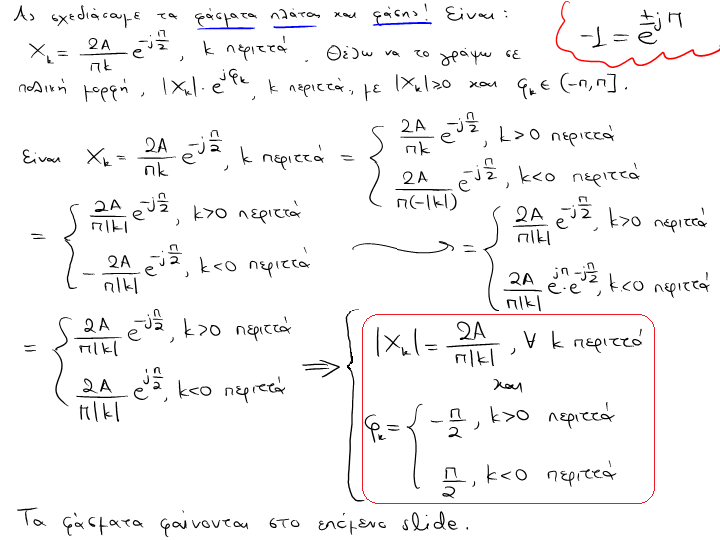 Ας σχεδιάσουμε τα φάσματα πλάτους και φάσης! Είναι:
-1 = e^{±jπ}
X_k = \frac{2A}{πk} e^{-j\frac{π}{2}}, k περιττά. Θέλω να το γράψω σε
πολική μορφή, |X_k| · e^{jφ_k}, k περιττά, με |X_k| ≥ 0 και φ_k ∈ (-π, π].
Είναι X_k = \frac{2A}{πk} e^{-j\frac{π}{2}}, k περιττά = { \frac{2A}{πk} e^{-j\frac{π}{2}}, k>0 περιττά
\frac{2A}{π(-|k|)} e^{-j\frac{π}{2}}, k<0 περιττά
= { \frac{2A}{π|k|} e^{-j\frac{π}{2}}, k>0 περιττά
-\frac{2A}{π|k|} e^{-j\frac{π}{2}}, k<0 περιττά
= { \frac{2A}{π|k|} e^{-j\frac{π}{2}}, k>0 περιττά
\frac{2A}{π|k|} e^{jπ} · e^{-j\frac{π}{2}}, k<0 περιττά
= { \frac{2A}{π|k|} e^{-j\frac{π}{2}}, k>0 περιττά
\frac{2A}{π|k|} e^{j\frac{π}{2}}, k<0 περιττά
⟹ { |X_k| = \frac{2A}{π|k|}, ∀ k περιττό
και
φ_k = { -\frac{π}{2}, k>0 περιττά
\frac{π}{2}, k<0 περιττά
Τα φάσματα φαίνονται στο επόμενο slide.